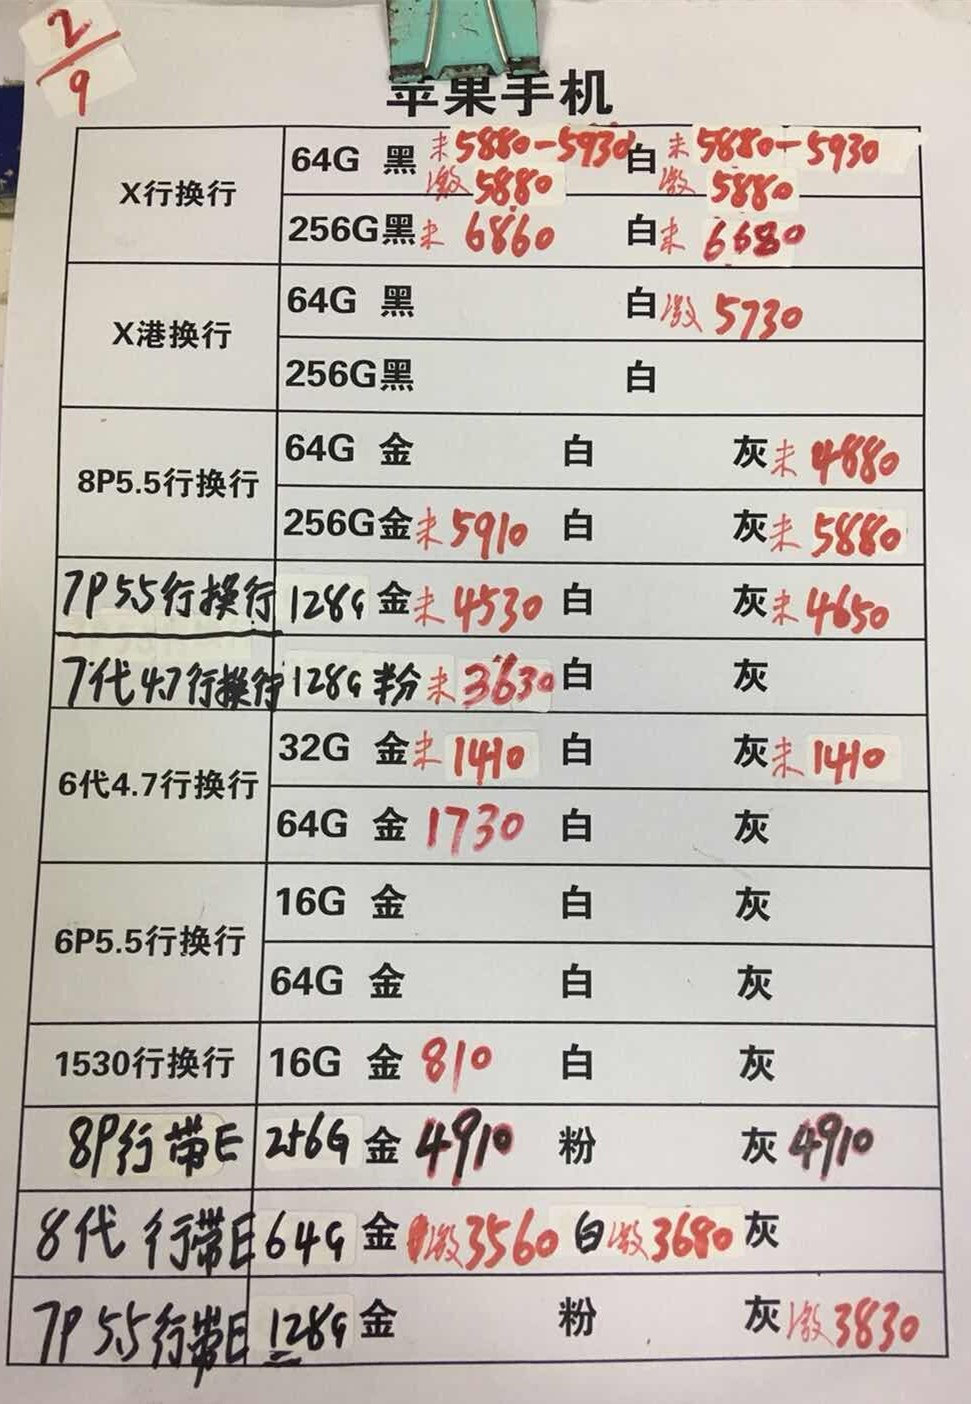 2/9
苹果手机
X行换行 64G 黑 未5880-5930 白 未5880-5930
激5880 激5880
256G 黑 未6860 白 未6680
X港换行 64G 黑 白 激5730
256G 黑 白
8P5.5行换行 64G 金 白 灰 未4880
256G 金 未5910 白 灰 未5880
7P 5.5行换行 128G 金 未4530 白 灰 未4650
7代4.7行换行 128G 粉 未3630 白 灰
6代4.7行换行 32G 金 未1410 白 灰 未1410
64G 金 1730 白 灰
6P5.5行换行 16G 金 白 灰
64G 金 白 灰
1530行换行 16G 金 810 白 灰
8P行带E 256G 金 4910 粉 灰 4910
8代 行带E 64G 金 激3560 白 激3680 灰
7P 5.5行带E 128G 金 粉 灰 激3830